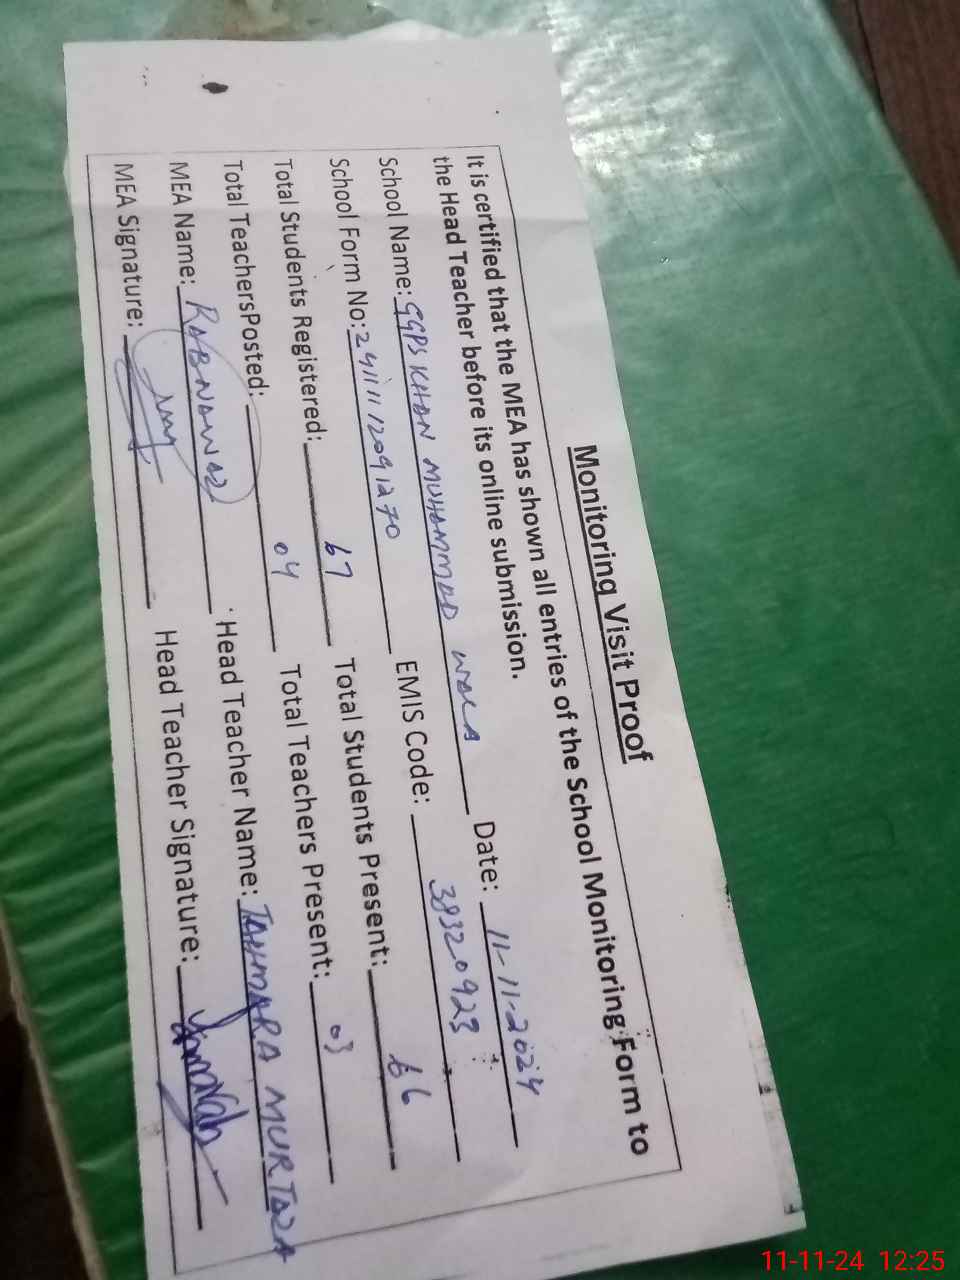 Monitoring Visit Proof
It is certified that the MEA has shown all entries of the School Monitoring Form to
the Head Teacher before its online submission.
School Name: GGPS KHAN MUHAMMAD WALA Date: 11-11-2024
School Form No: 24111112091270 EMIS Code: 38320923
Total Students Registered: 67 Total Students Present: 66
Total TeachersPosted: 04 Total Teachers Present: 03
MEA Name: RABNAWAZ Head Teacher Name: TAHMARA MURTAZA
MEA Signature: Head Teacher Signature:
11-11-24 12:25